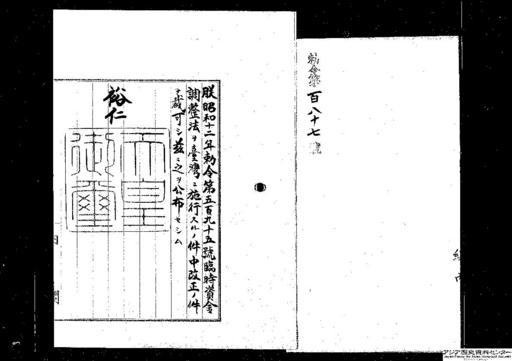 勅令第百八十七號
朕昭和十二年勅令第五百九十五號臨時資金
調整法ヲ臺灣ニ施行スルノ件中改正ノ件
ヲ裁可シ茲ニ之ヲ公布セシム
裕仁
天皇
御璽
内閣
アジア歴史資料センター
Japan Center for Asian Historical Records